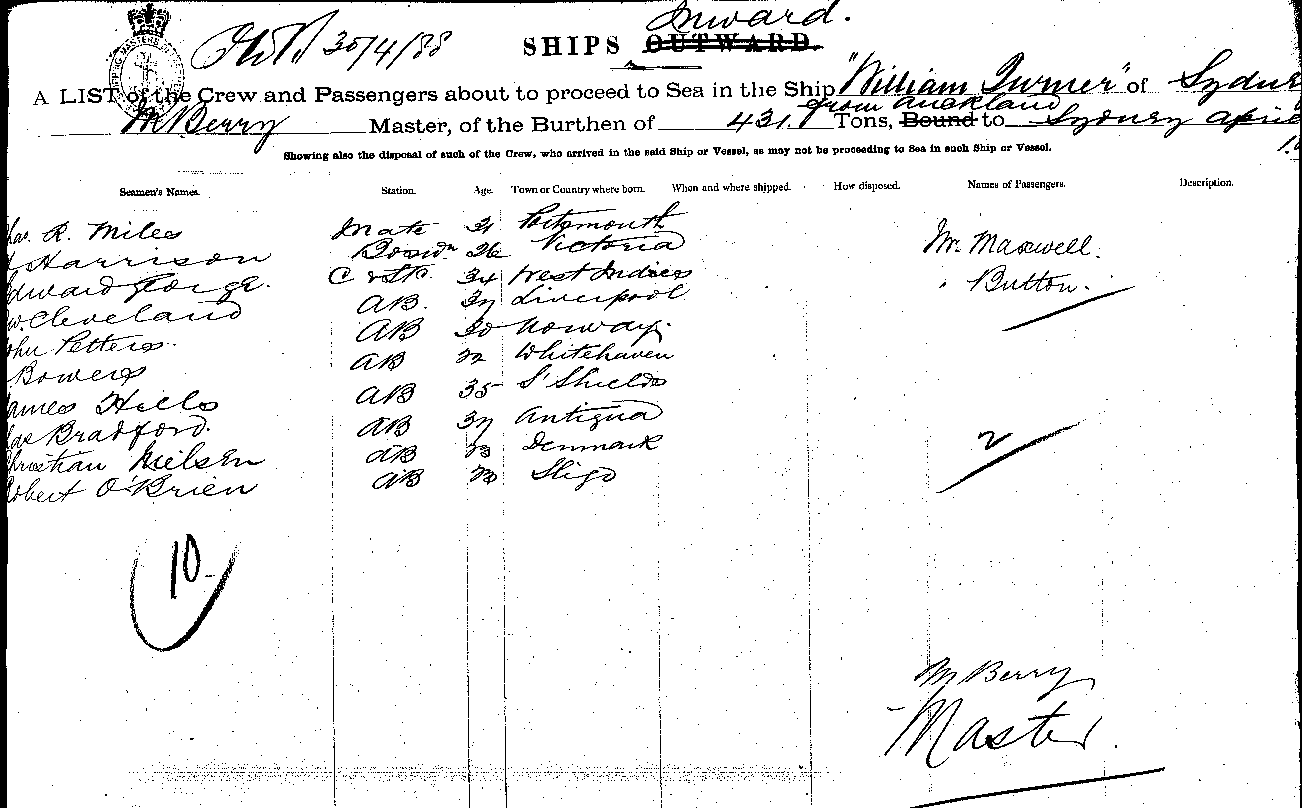 Inward.
30/4/88 SHIPS OUTWARD.
A LIST of the Crew and Passengers about to proceed to Sea in the Ship "William Turner" of
from Auckland
M Berry Master, of the Burthen of 431. Tons, Bound to Sydney
Showing also the disposal of such of the Crew, who arrived in the said Ship or Vessel, as may not be proceeding to Sea in such Ship or Vessel.
Seamen's Names. Station. Age. Town or Country where born. When and where shipped. How disposed. Names of Passengers. Description.
R. Miles Mate Portsmouth
Harrison Boswn 26 Victoria Mr. Maxwell.
George. 34 West Indies Button.
Cleveland AB. Liverpool
Petters. AB Norway.
Bowers AB Whitehaven
Hills AB 35 S' Shields
Bradford. AB Antigua
Nielsen AB Denmark 2
O'Brien AB Sligo
10
M Berry
Master.